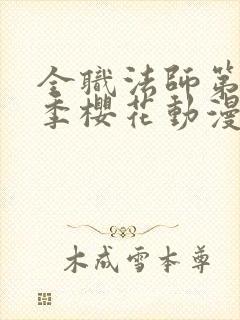 全職法師第
季櫻花動漫
木成雪本尊